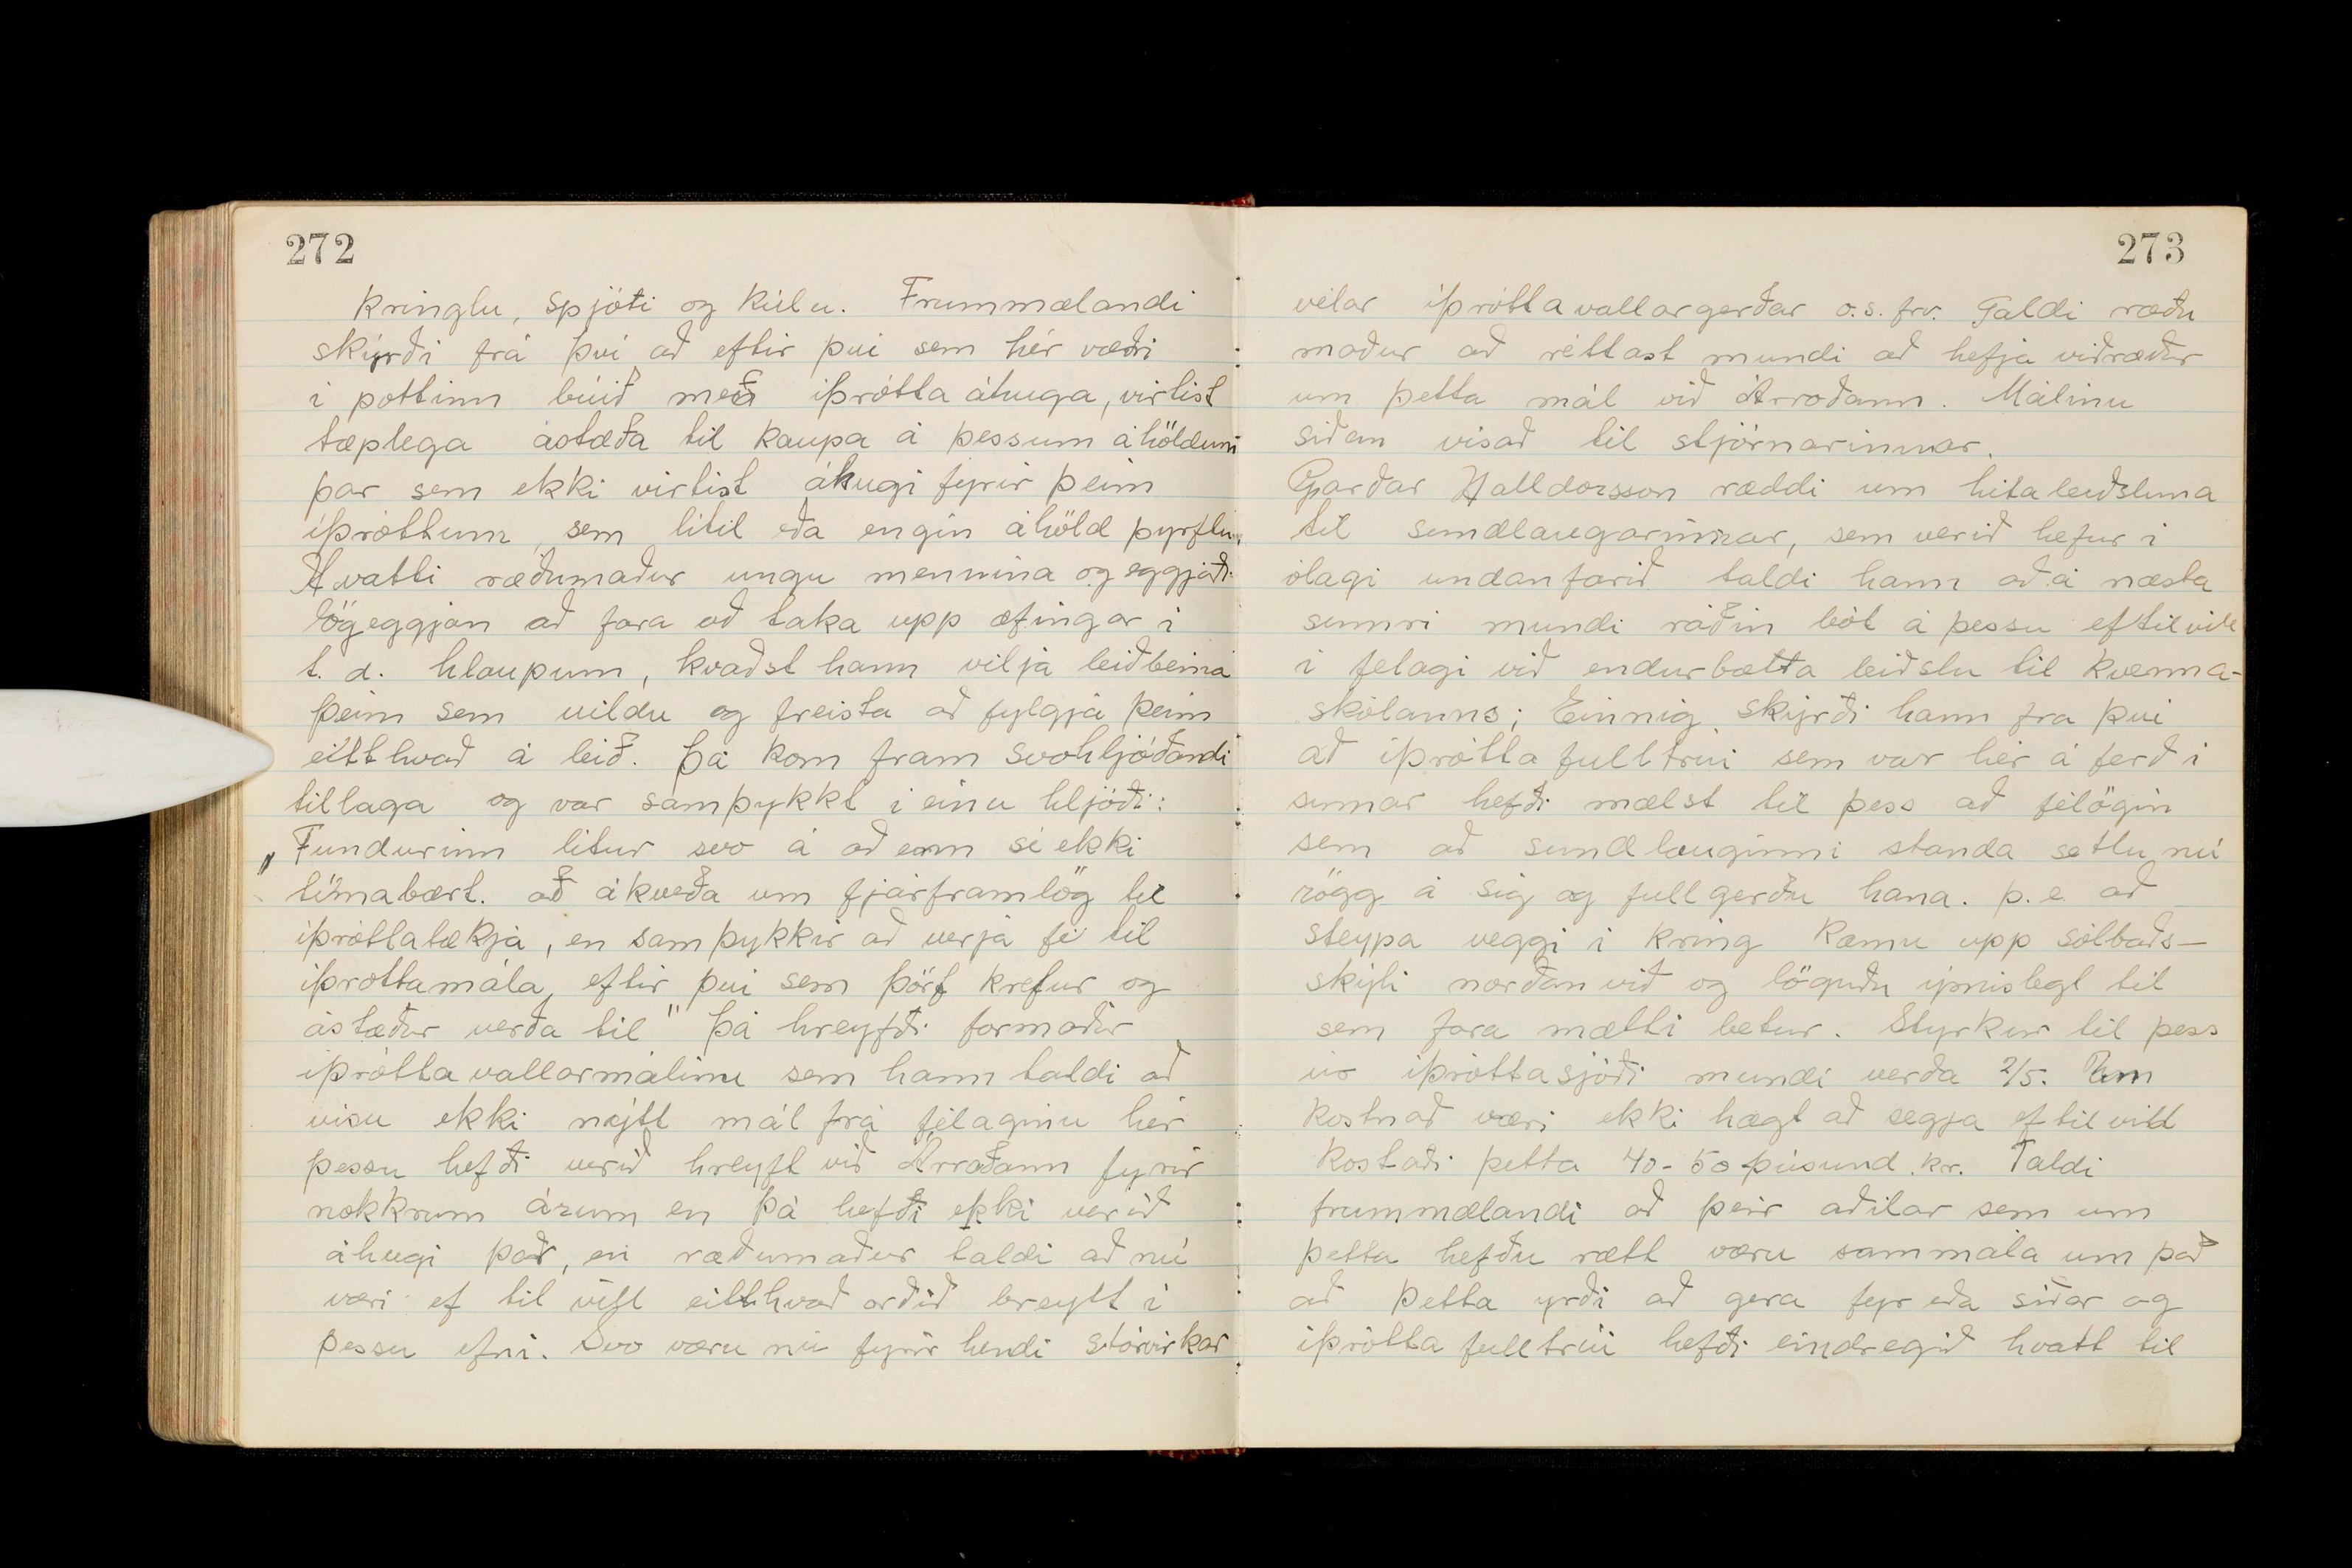 272
kringlu, spjóti og kúlu. Frummælandi
skýrði frá því að eftir því sem hér væri
í pottinn búið með íþrótta áhuga, virtist
tæplega ástæða til kaupa á þessum áhöldum
þar sem ekki virtist áhugi fyrir þeim
íþróttum, sem lítil eða engin áhöld þyrftu.
Hvatti ræðumaður ungu mennina og eggjaði
lögeggjan að fara að taka upp æfingar í
t.d. hlaupum, kvaðst hann vilja leiðbeina
þeim sem vildu og freista að fylgja þeim
eitthvað á leið. Þá kom fram svohljóðandi
tillaga og var samþykkt í einu hljóði:
„Fundurinn lítur svo á að enn sé ekki
tímabært. að ákveða um fjárframlög til
íþróttatækja, en samþykkir að verja fé til
íþróttamála, eftir því sem þörf krefur og
ástæður verða til" Þá hreyfði formaður
íþróttavallarmálinu sem hann taldi að
vísu ekki nýtt mál frá félaginu hér
þessu hefði verið hreyft við Árroðann fyrir
nokkrum árum en þá hefði ekki verið
áhugi þar, en ræðumaður taldi að nú
væri ef til vill eitthvað orðið breytt í
þessu efni. Svo væru nú fyrir hendi stórvirkar
273
vélar íþróttavallargerðar o.s.frv. Taldi ræðu
maður að réttast mundi að hefja viðræður
um þetta mál við Árroðann. Málinu
síðan vísað til stjórnarinnar.
Garðar Halldórsson ræddi um hitaleiðsluna
til sundlaugarinnar, sem verið hefur í
ólagi undanfarið taldi hann að á næsta
sumri mundi ráðin bót á þessu eftilvill
í félagi við endurbætta leiðslu til kvenna-
skólanns; Einnig skýrði hann frá því
að íþróttafulltrúi sem var hér á ferð í
sumar hefði mælst til þess að félögin
sem að sundlauginni standa settu nú
rögg á sig og fullgerðu hana. þ.e. að
steypa veggi í kring kæmu upp sólbaðs-
skýli norðan við og löguðu ýmislegt til
sem fara mætti betur. Styrkur til þess
úr íþróttasjóði mundi verða 2/5. Um
kostnað væri ekki hægt að segja eftilvill
kostaði þetta 40-50 þúsund. kr. Taldi
frummælandi að þeir aðilar sem um
þetta hefðu rætt væru sammála um það
að þetta yrði að gera fyr eða síðar og
íþróttafulltrúi hefði eindregið hvatt til